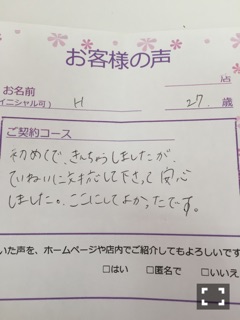 お客様の声
店
お名前
イニシャル可） H 27 歳
ご契約コース
初めてで、きんちょうしましたが、
ていねいに対応して下さって安心
しました。ここにしてよかったです。
いた声を、ホームページや店内でご紹介してもよろしいです
□はい □匿名で □いいえ